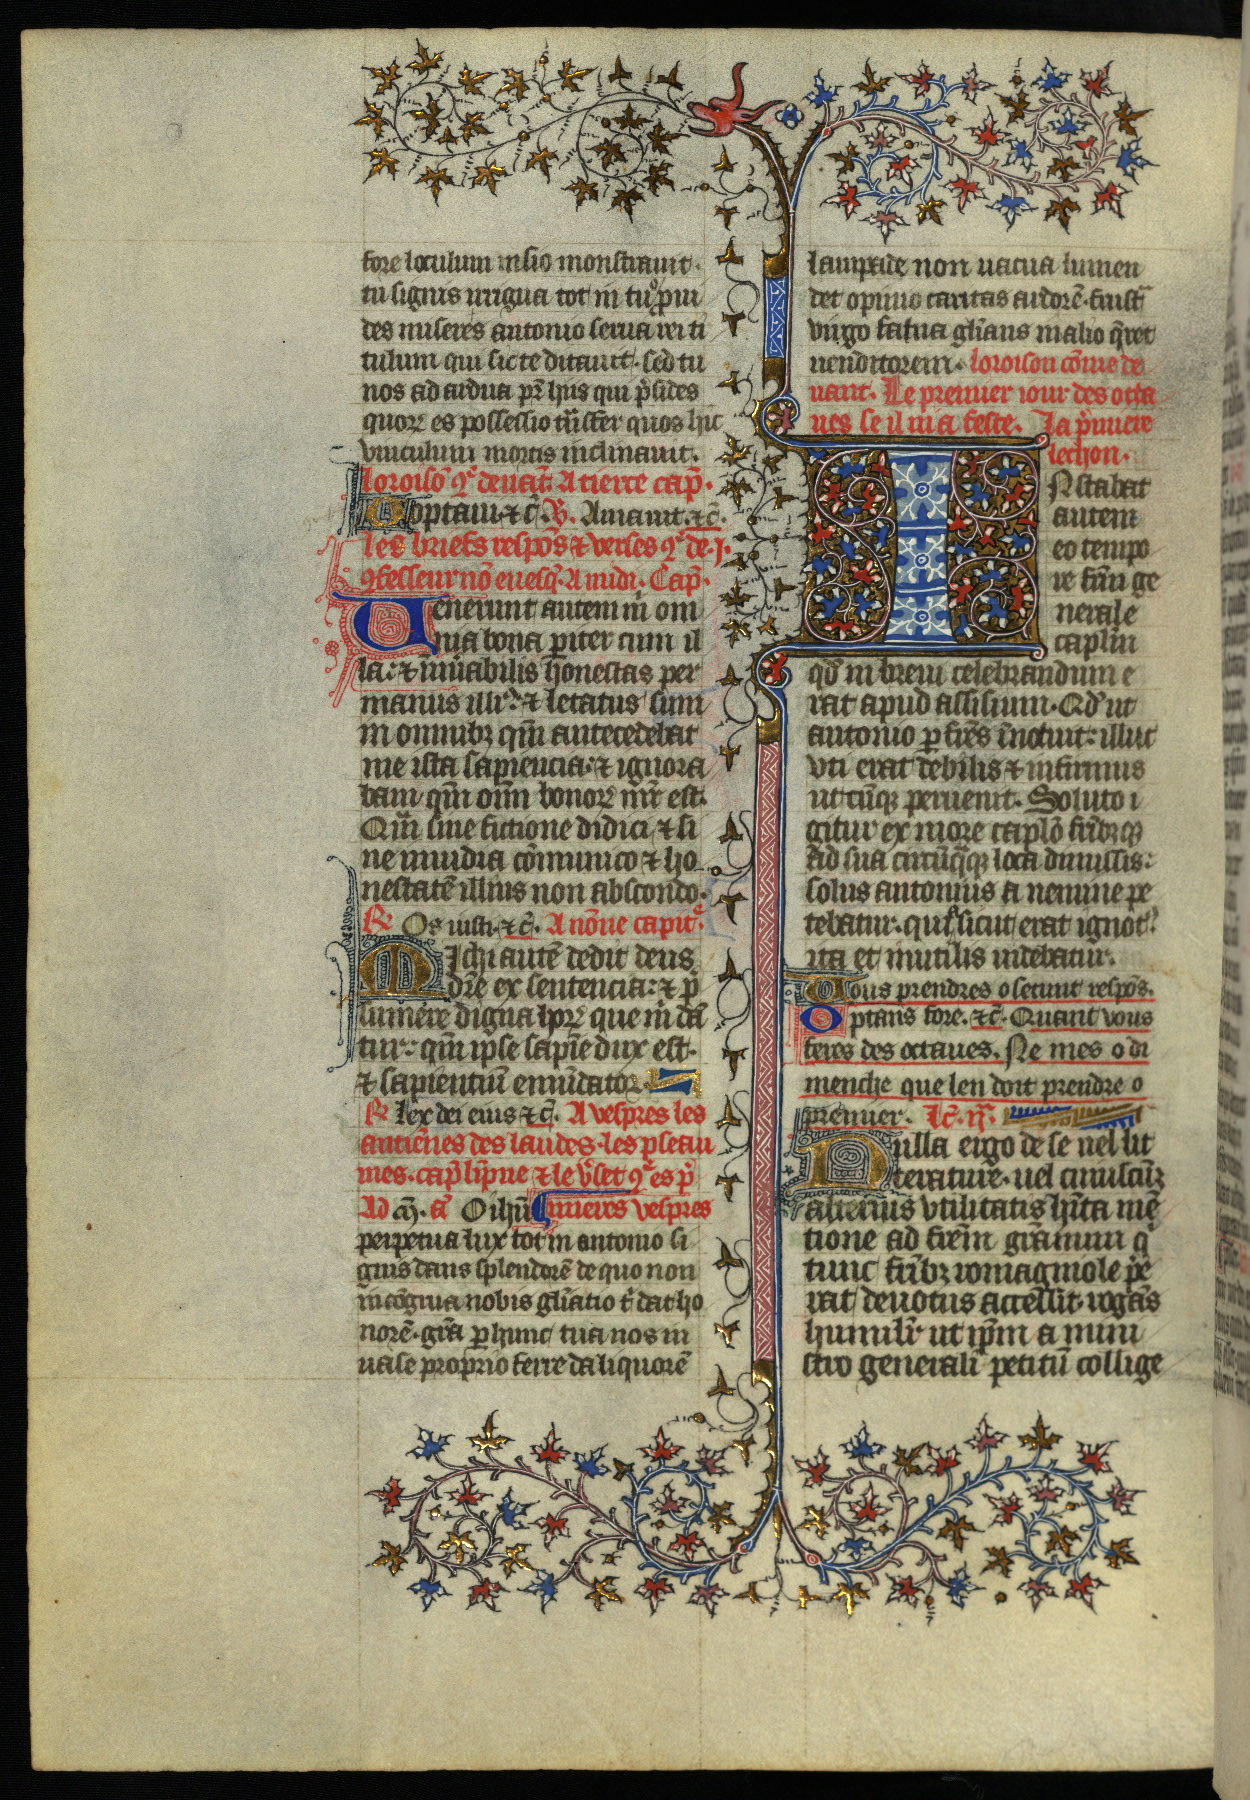 fore loculum in sio monstrauit.
tu signis irrigua tot in tuos pui
des miseris antonio serua rei ti
tulum qui sic te ditauit. sed tu
nos ad ardua pr̄ huis qui p̄sides
quorꝝ es possessio tūsfer quos hic
vinculum mortis inclinauit.
loroisō 9ͤ deuāt. A tierce cap̄.
Optaui ⁊ c̄. V. Amauit. ⁊c̄.
les briefs respōs ⁊ verses 9ͤ de .j.
9fesseur nō euesq̄. A midi. Cap̄.
Uenerunt autem m̄ om
nia bona p̄iter cum il
la: ⁊ īnūabilis honestas per
manus illiꝰ. ⁊ letatus sum
in omnibꝫ qm̄ antecedebat
me ista sapiencia: ⁊ ignora
bam qm̄ om̄ bonorꝝ mr̄ est.
Qm̄ sine fictione didici ⁊ si
ne inuidia cōmunico ⁊ ho
nestatē illius non abscondo.
R̄ Os iusti. ⁊c̄. A nōne capitͤ.
Michi autē dedit deus
dr̄e ex sentencia: ⁊ p̄
sumere digna horꝝ que m̄ dā
tur: qm̄ ipse sapīe dux est.
⁊ sapientiū emēdator.
R̄ lex dei eius ⁊c̄. A vespres les
antienes des laudes. les pseau
mes. cap̄l. lipne ⁊ le v̄set 9ͤ es p̄
Ad m̄. a͞ O ihū mieres vespres
perpetua lux tot in antonio si
gnis dans splendorē de quo non
incōgrua nobis gl̄iatio t̄ dat ho
norē. gr̄a p hunc tua nos in
vase proprio ferre da liquorē
lampade non uacua lumen
det opimo caritas ardorē. si iusta
virgo fatua gl̄ians malio q̄ret
uenditorem. loroison cōme de
uant. Le premier iour des octa
ues se il ni a feste. La p̄miere
lechon.
Instabat
autem
eo tempo
re frm̄ ge
nerale
caplm̄
qd̄ in breui celebrandum e
rat apud assisium. Qd̄ ut
antonio p fr̄es īnotuit: illuc
vti erat debilis ⁊ infirmus
utcūqꝫ peruenit. Soluto i
gitur ex more caplō frībꝫ qꝫ
ad sua cūqꝫ loca dimissis:
solus antonius a nemine pe
tebatur. qui sicut erat ignotꝰ
ita et inutilis uidebatur.
Tous prendres o secunt respōs.
Optans fore. ⁊c̄. Quant vous
feres des octaues. Ne mes o di
menche que len doit prendre o
premier. lc̄. ij͞.
Nulla ergo de se uel lit
terature. uel cuiuscūꝫ
alterius vtilitatis hīta mē
tione ad fr̄em gr̄anum qͥ
tunc frībꝫ romagniole pe
rat deuotus accessit. rogās
humilit̄ ut ip̄m a mini
stro generali petitū collige